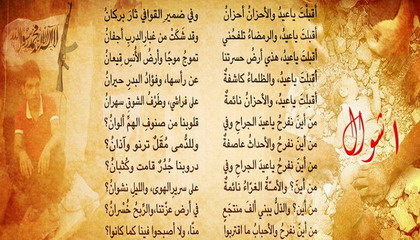 لا إله إلا الله محمد رسول الله
أقبلتَ ياعيدُ والأحزانُ أحزانُ وفي ضميرِ القوافي ثارَ بركانُ
أقبلتَ ياعيدُ، والرمضاءُ تلفحُني وقد شكَتْ من غبارِ الدربِ أجفانُ
أقبلتَ ياعيدُ، هذي أرضُ حسرتنا تموجُ موجًا وأرضُ الأُنسِ قيعانُ
أقبلتَ ياعيدُ، والظلماءُ كاشفةٌ عن رأسها، وفؤادُ البدرِ حيرانُ
أقبلتَ ياعيدُ، والأحزانُ نائمةٌ على فراشي، وطَرْفُ الشوقِ سهرانُ
من أينَ نفرحُ ياعيدَ الجراحِ وفي قلوبنا من صنوفِ الهمِّ ألوانُ؟
من أينَ نفرحُ والأحداثُ عاصفةٌ وللدُّمى مُقَلٌ ترنو وآذانُ؟
من أينَ نفرحُ ياعيدَ الجراحِ وفي دروبنا جُدُرٌ قامت وكُثبانُ؟
من أينَ؟ والأمّةُ الغرّاءُ نائمةٌ على سريرِ الهوى، والليل نشوانُ؟
من أينَ؟ والذلُّ يبني ألفَ منتجَعٍ في أرضِ عزّتنا، والرِّبحُ خُسْرانُ؟
من أينَ نفرحُ والأحبابُ ما اقتربوا منّا، ولا أصبحوا فينا كما كانوا؟
اشوال